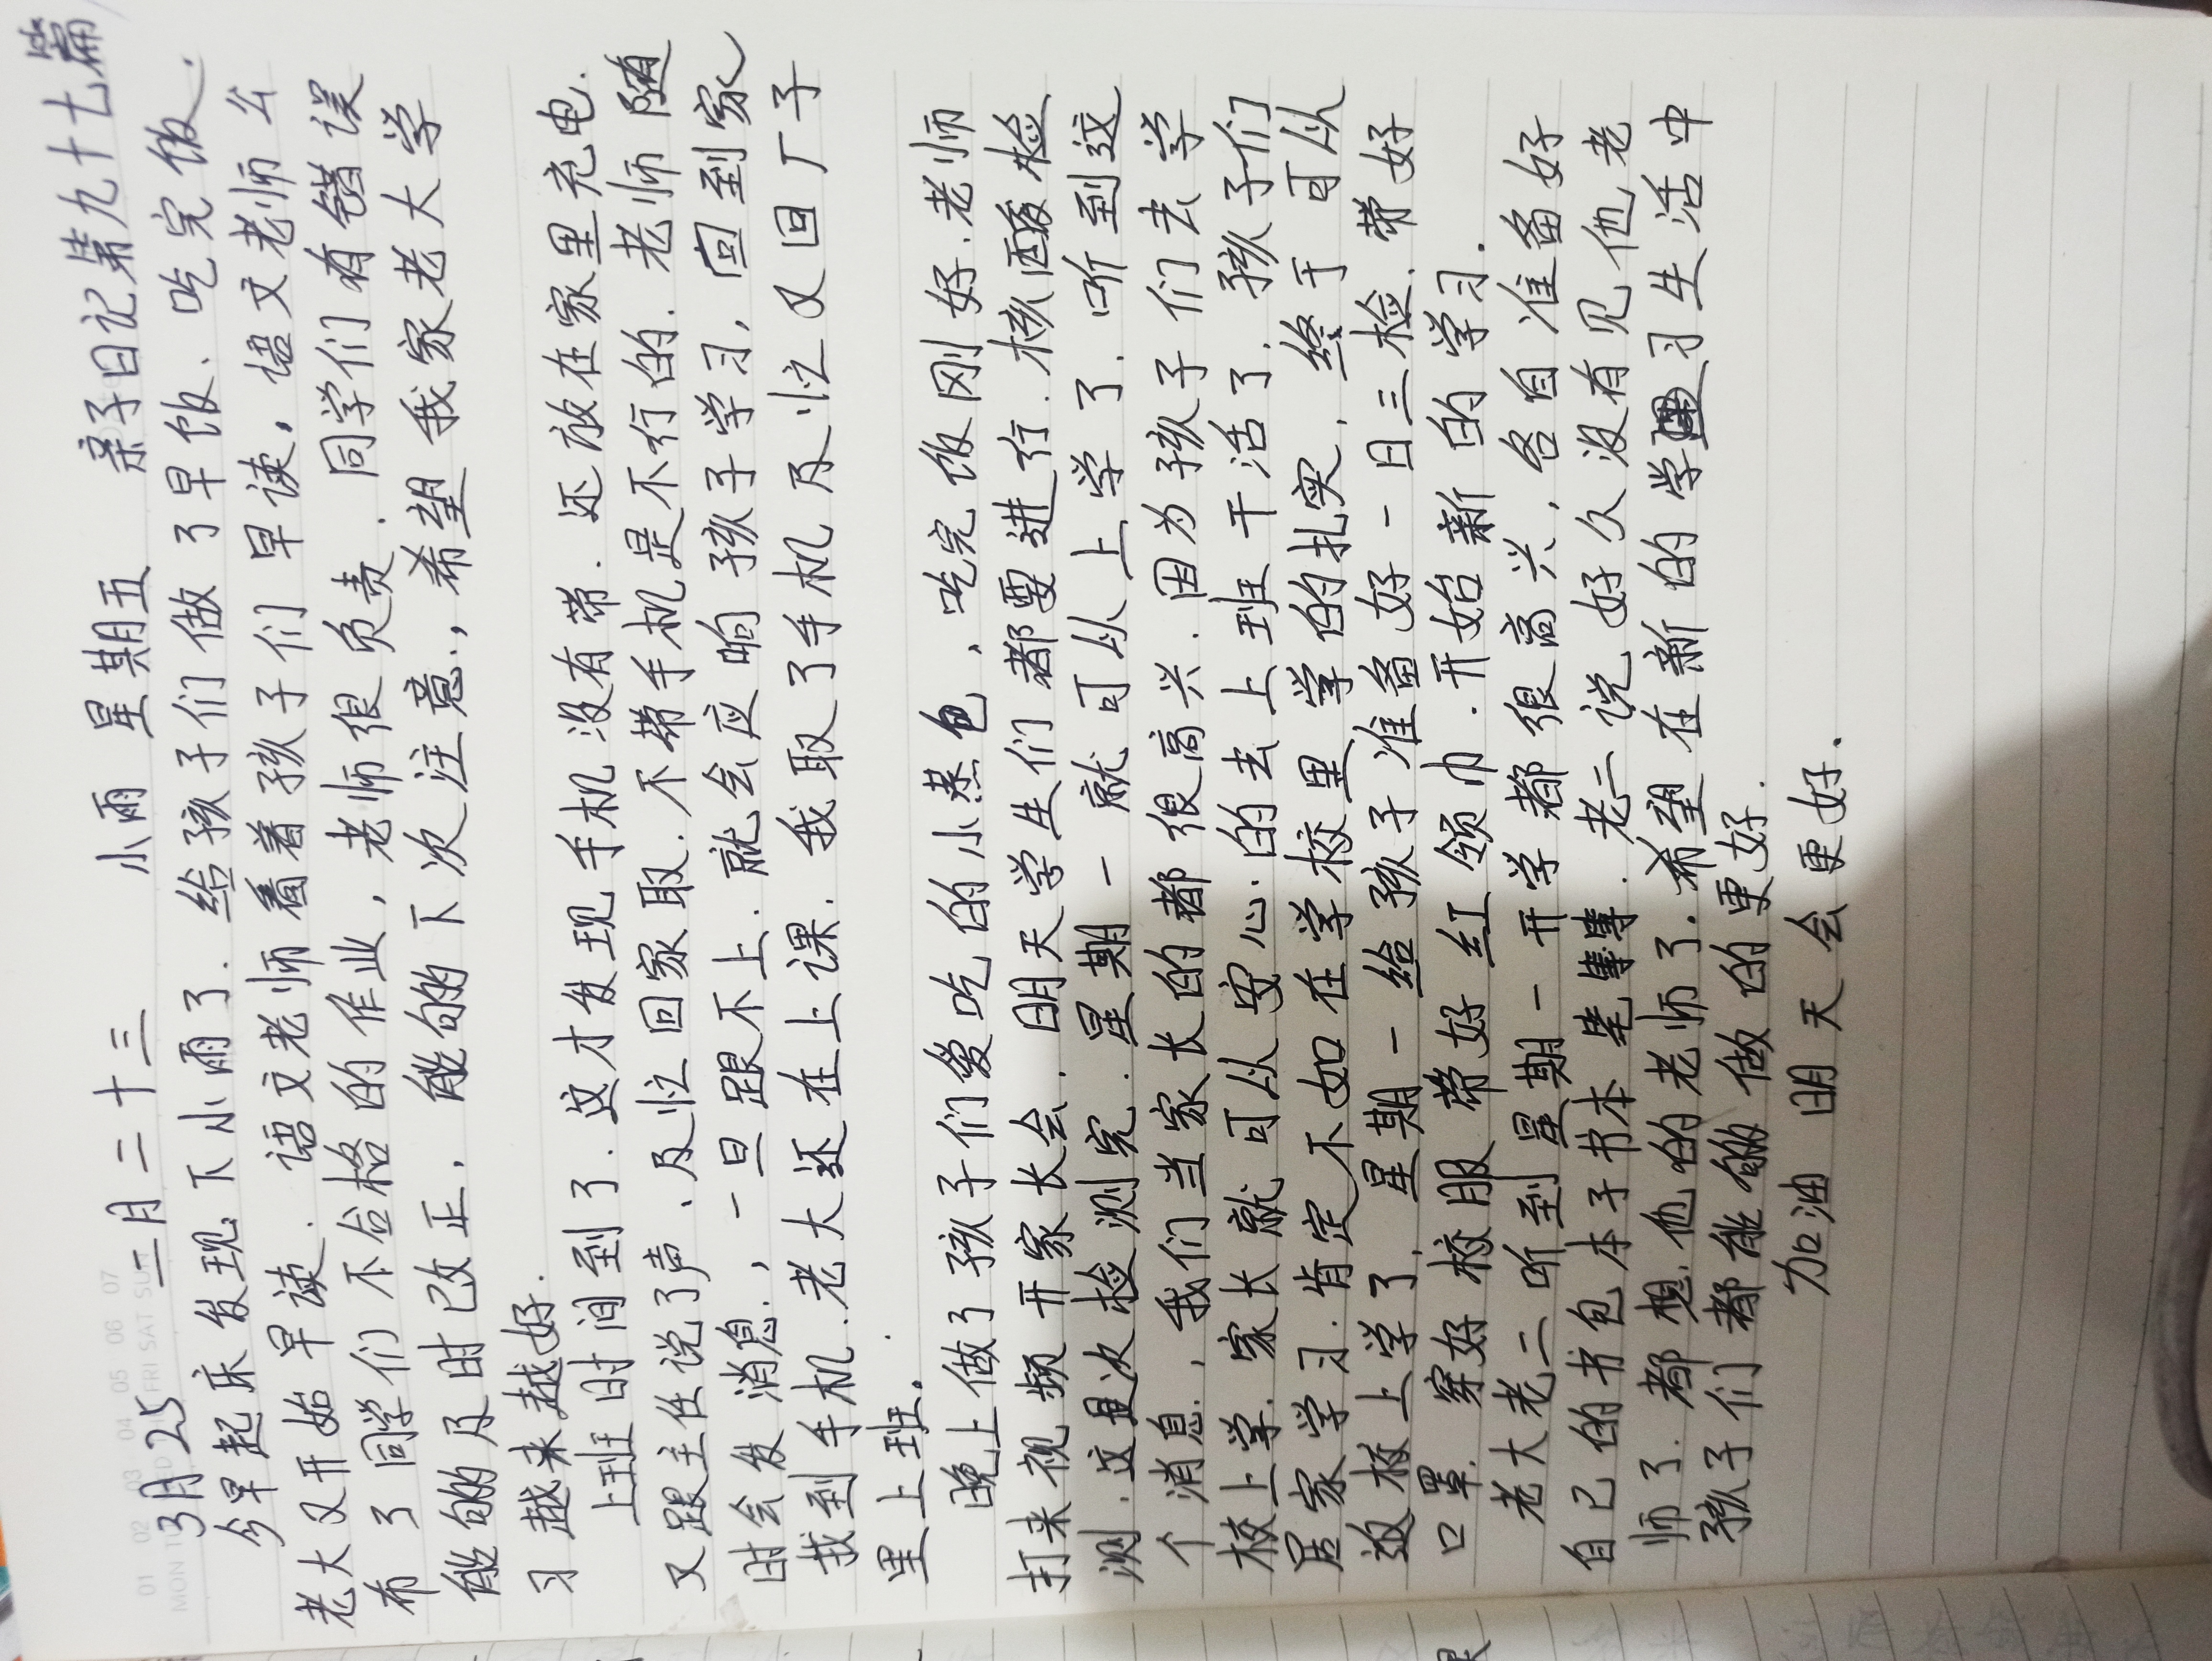 01 02 03 04 05 06 07
MON TUE WED THU FRI SAT SUN
3月25 二月二十三 小雨 星期五 亲子日记第九十七篇
今早起床发现下小雨了.给孩子们做了早饭、吃完饭.
老大又开始早读.语文老师看着孩子们早读,语文老师公
布了同学们不合格的作业,老师很负责.同学们有错误
能够的及时改正,能够的下次注意,希望我家老大学
习越来越好.
上班时间到了.这才发现手机没有带.还放在家里充电.
又跟主任说了声、及忙回家取.不带手机是不行的.老师随
时会发消息,一旦跟不上.就会应响孩子学习,回到家
找到手机.老大还在上课.我取了手机及忙又回厂子
里上班.
晚上做了孩子们爱吃的小蒸包、吃完饭刚好.老师
打来视频开家长会.明天学生们都要进行.核酸检
测.这次检测完.星期一就可从上学了.听到这
个消息,我们当家长的都很高兴.因为孩子们去学
校上学.家长就可从安心的去上班干活了.孩子们
居家学习.肯定不如在学校里学的扎实,终于可从
返校上学了.星期一给孩子准备好一日三检.带好
口罩.穿好校服带好红领巾.开始新的学习.
老大老二听到星期一开学都很高兴,各自准备好
自己的书包本子书本笔等.老二说好久没有见他老
师了.都想他的老师了.希望在新的学习生活中
孩子们都能够做的更好.
加油明天会更好.